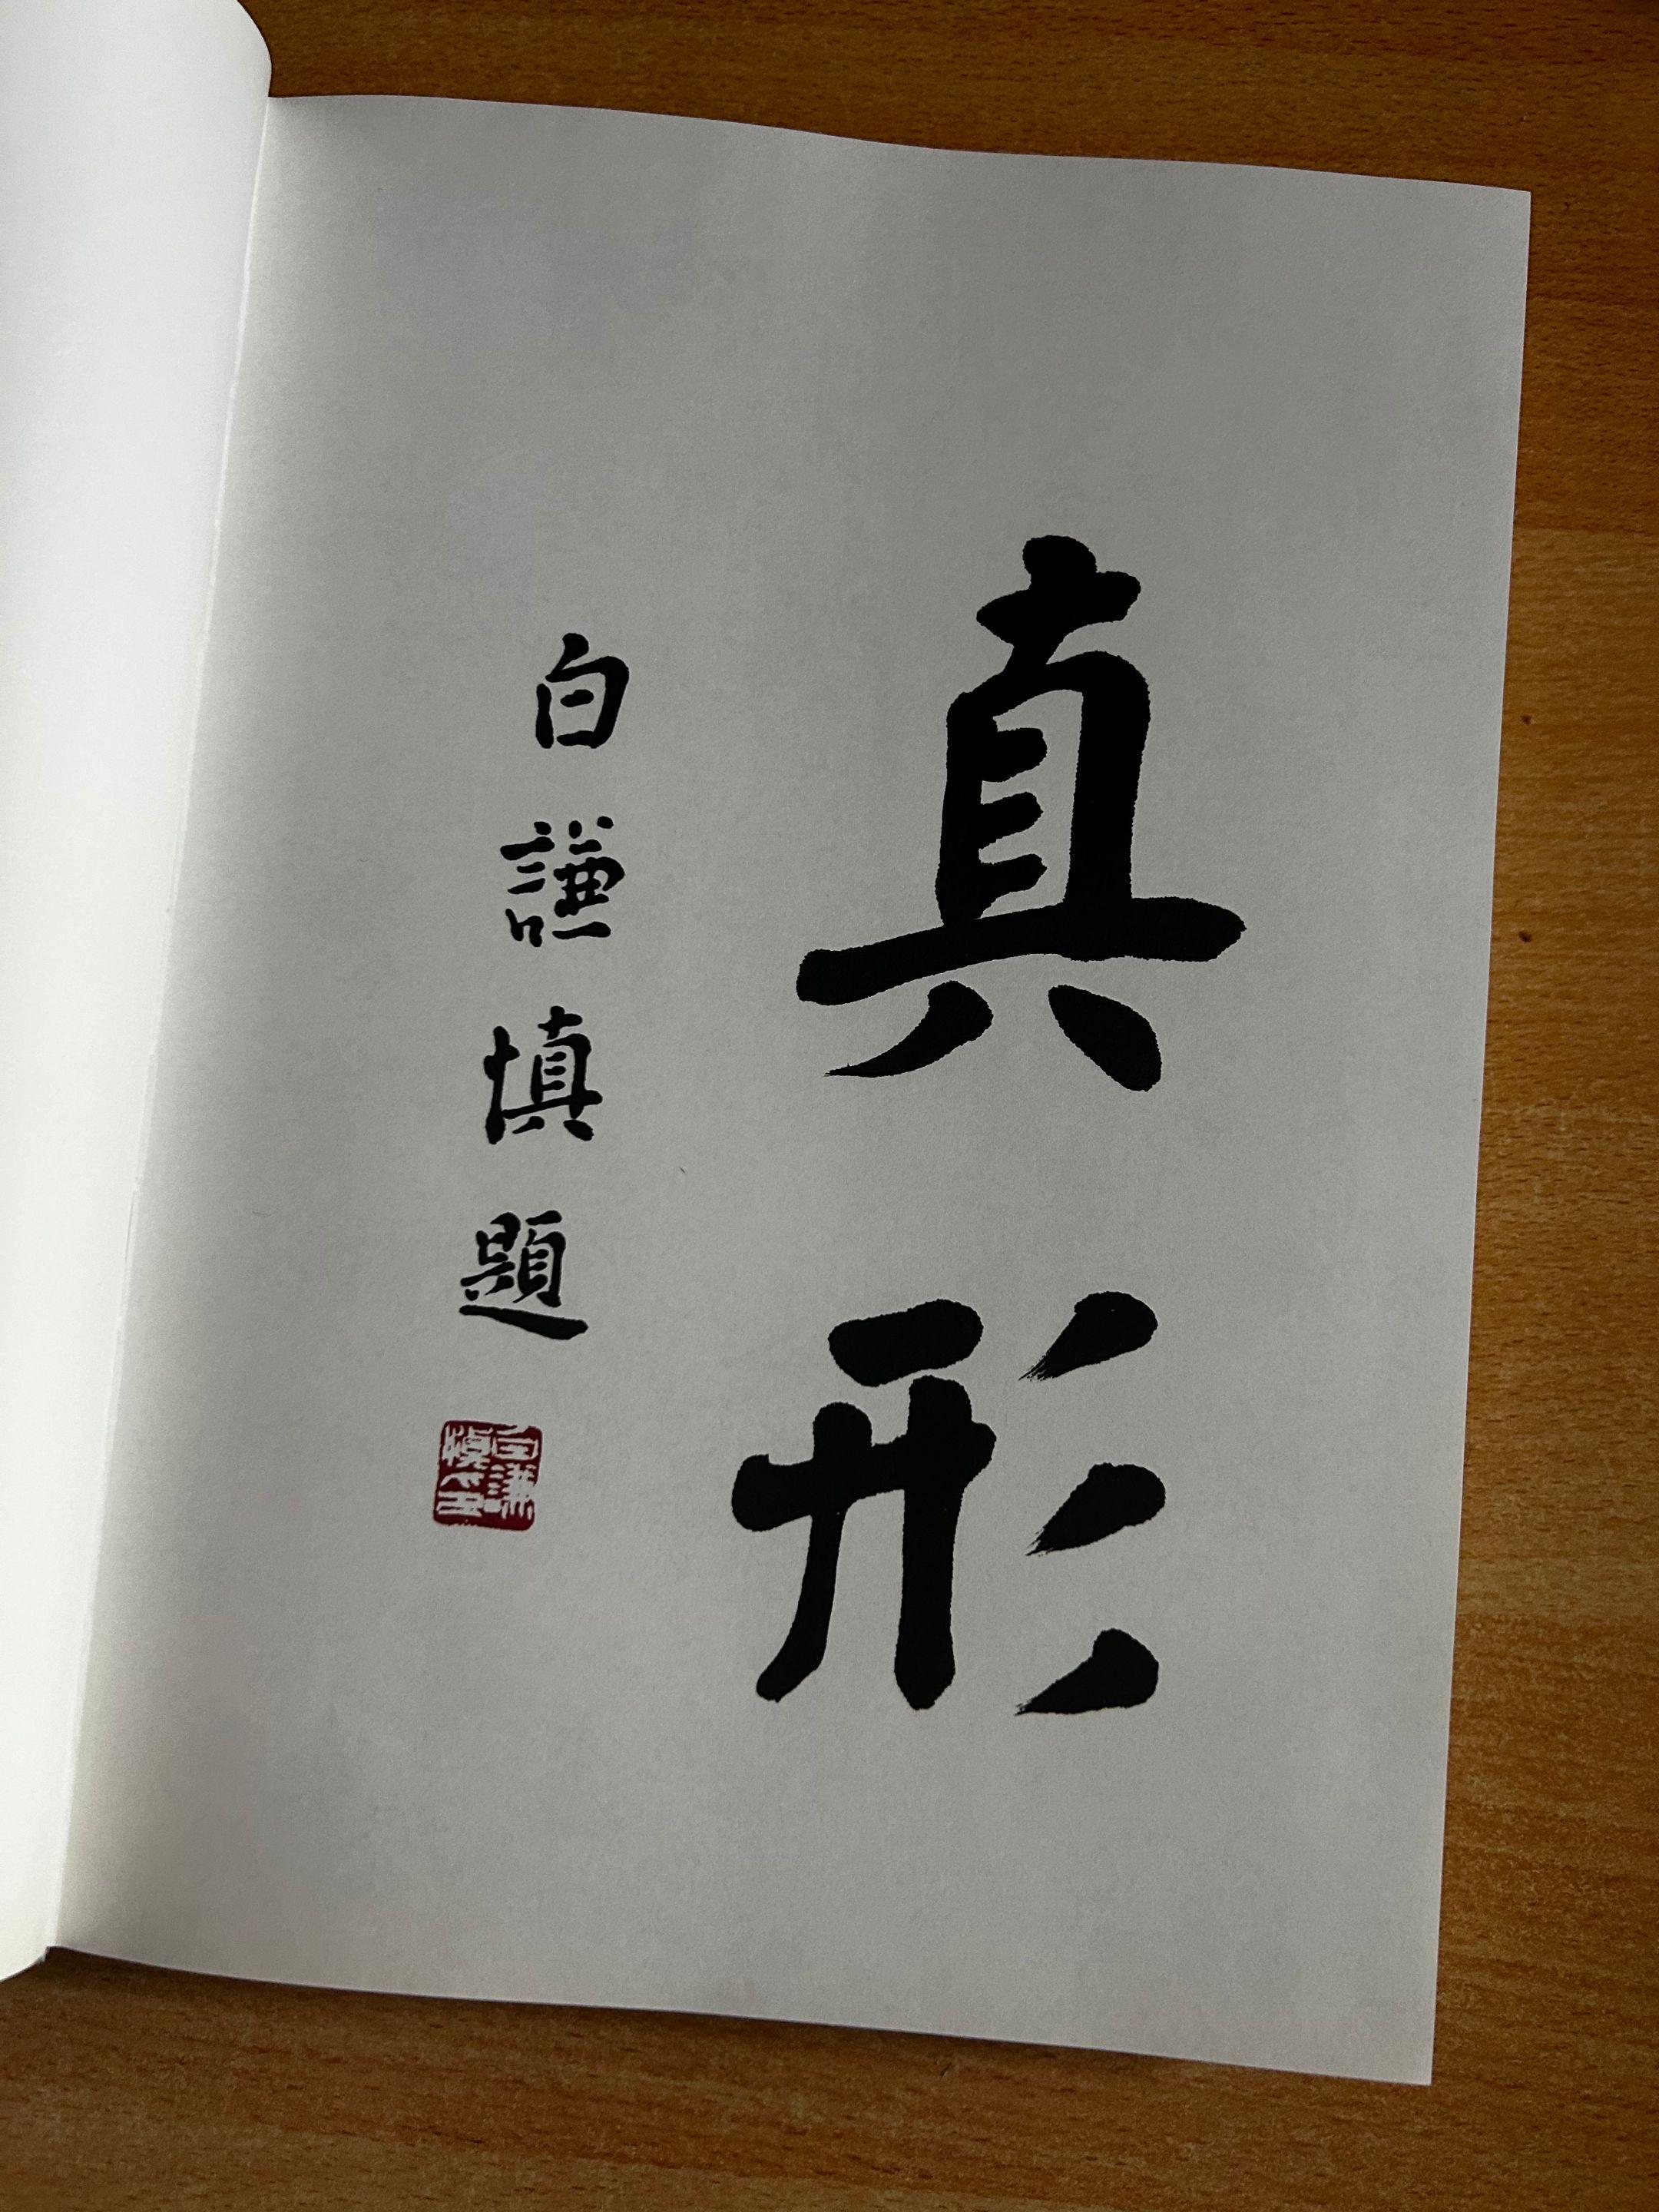 真形
白謙慎題
白謙慎印